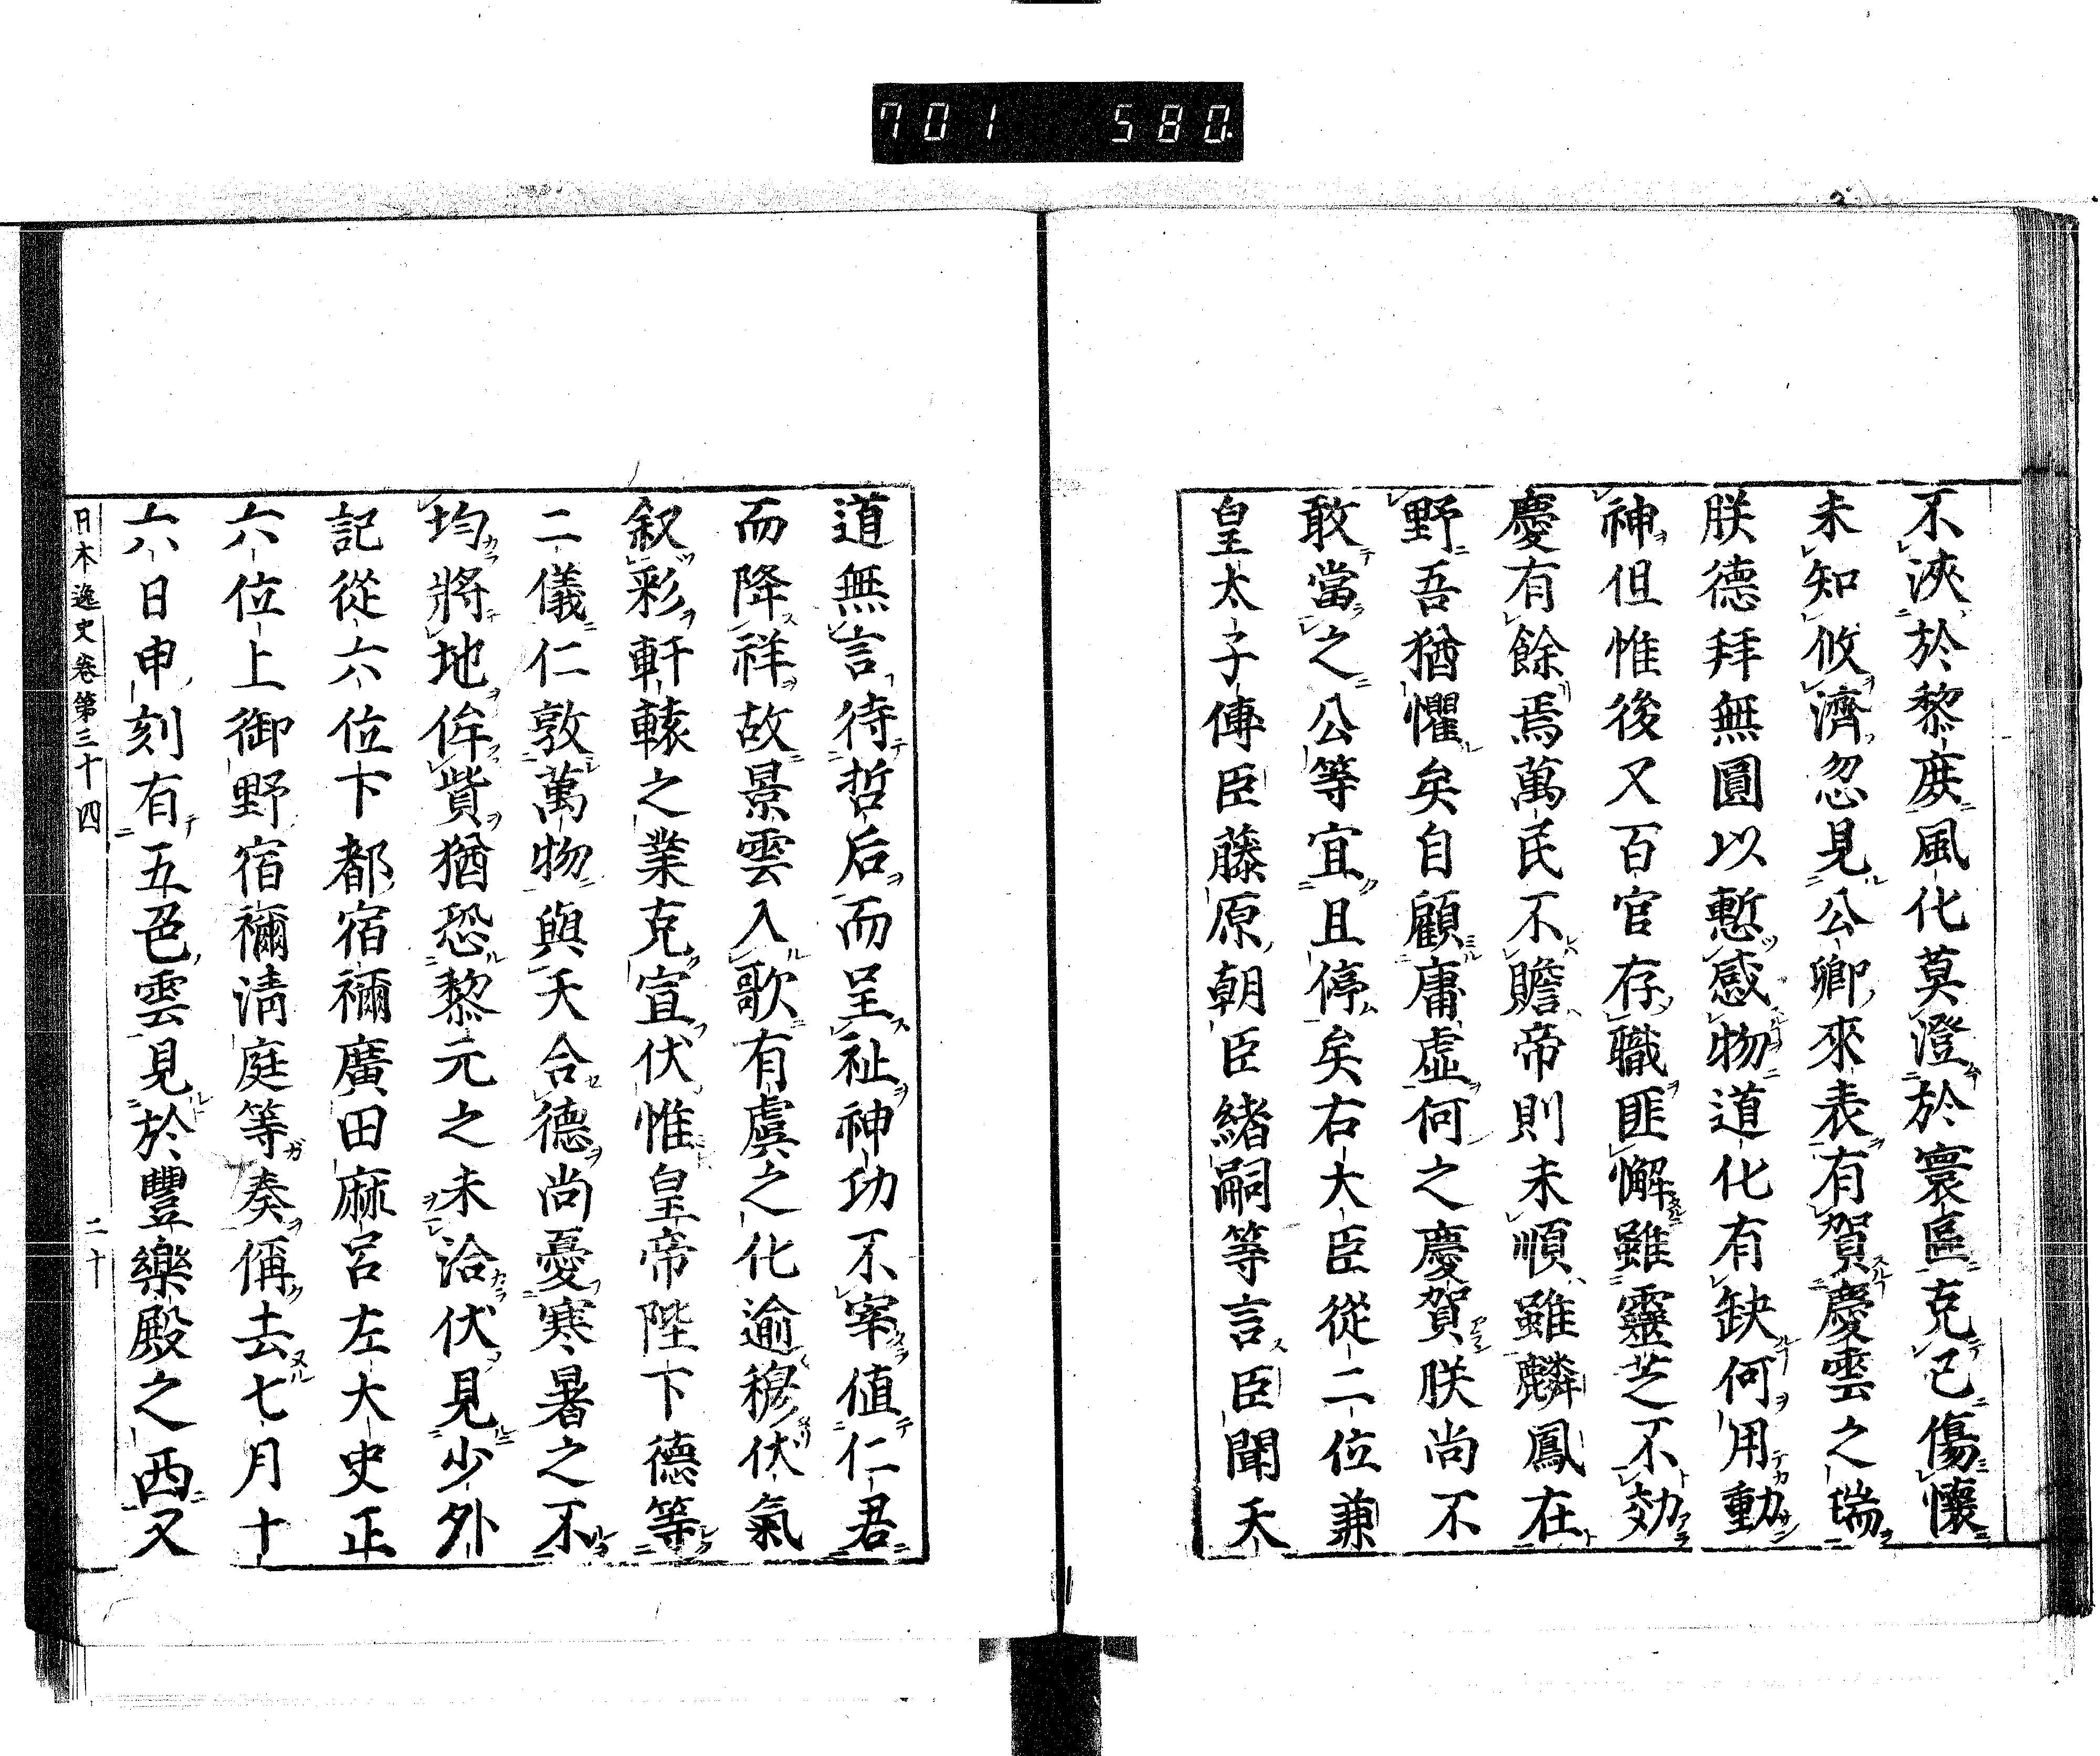 701 580
不浹於黎庶風化莫澄於寰區克己傷懷
未知攸濟忽見公卿來表有賀慶雲之瑞
朕德拜無圓以慙感物道化有缺何用動
神但惟後又百官存職匪懈雖靈芝不効
慶有餘焉萬民不贍帝則未順雖麟鳳在
野吾猶懼矣自顧庸虛何之慶賀朕尚不
敢當之公等宜且停矣右大臣從二位兼
皇太子傅臣藤原朝臣緒嗣等言臣聞天
道無言待哲后而呈祉神功不宰値仁君
而降祥故景雲入歌有虞之化逾穆伏氣
叙彩軒轅之業克宣伏惟皇帝陛下德等
二儀仁敦萬物與天合德尚憂寒暑之不
均將地侔貲猶恐黎元之未洽伏見少外
記從六位下都宿禰廣田麻呂左大史正
六位上御野宿禰淸庭等奏偁去七月十
六日申刻有五色雲見於豐樂殿之西又
日本逸史卷第三十四 二十